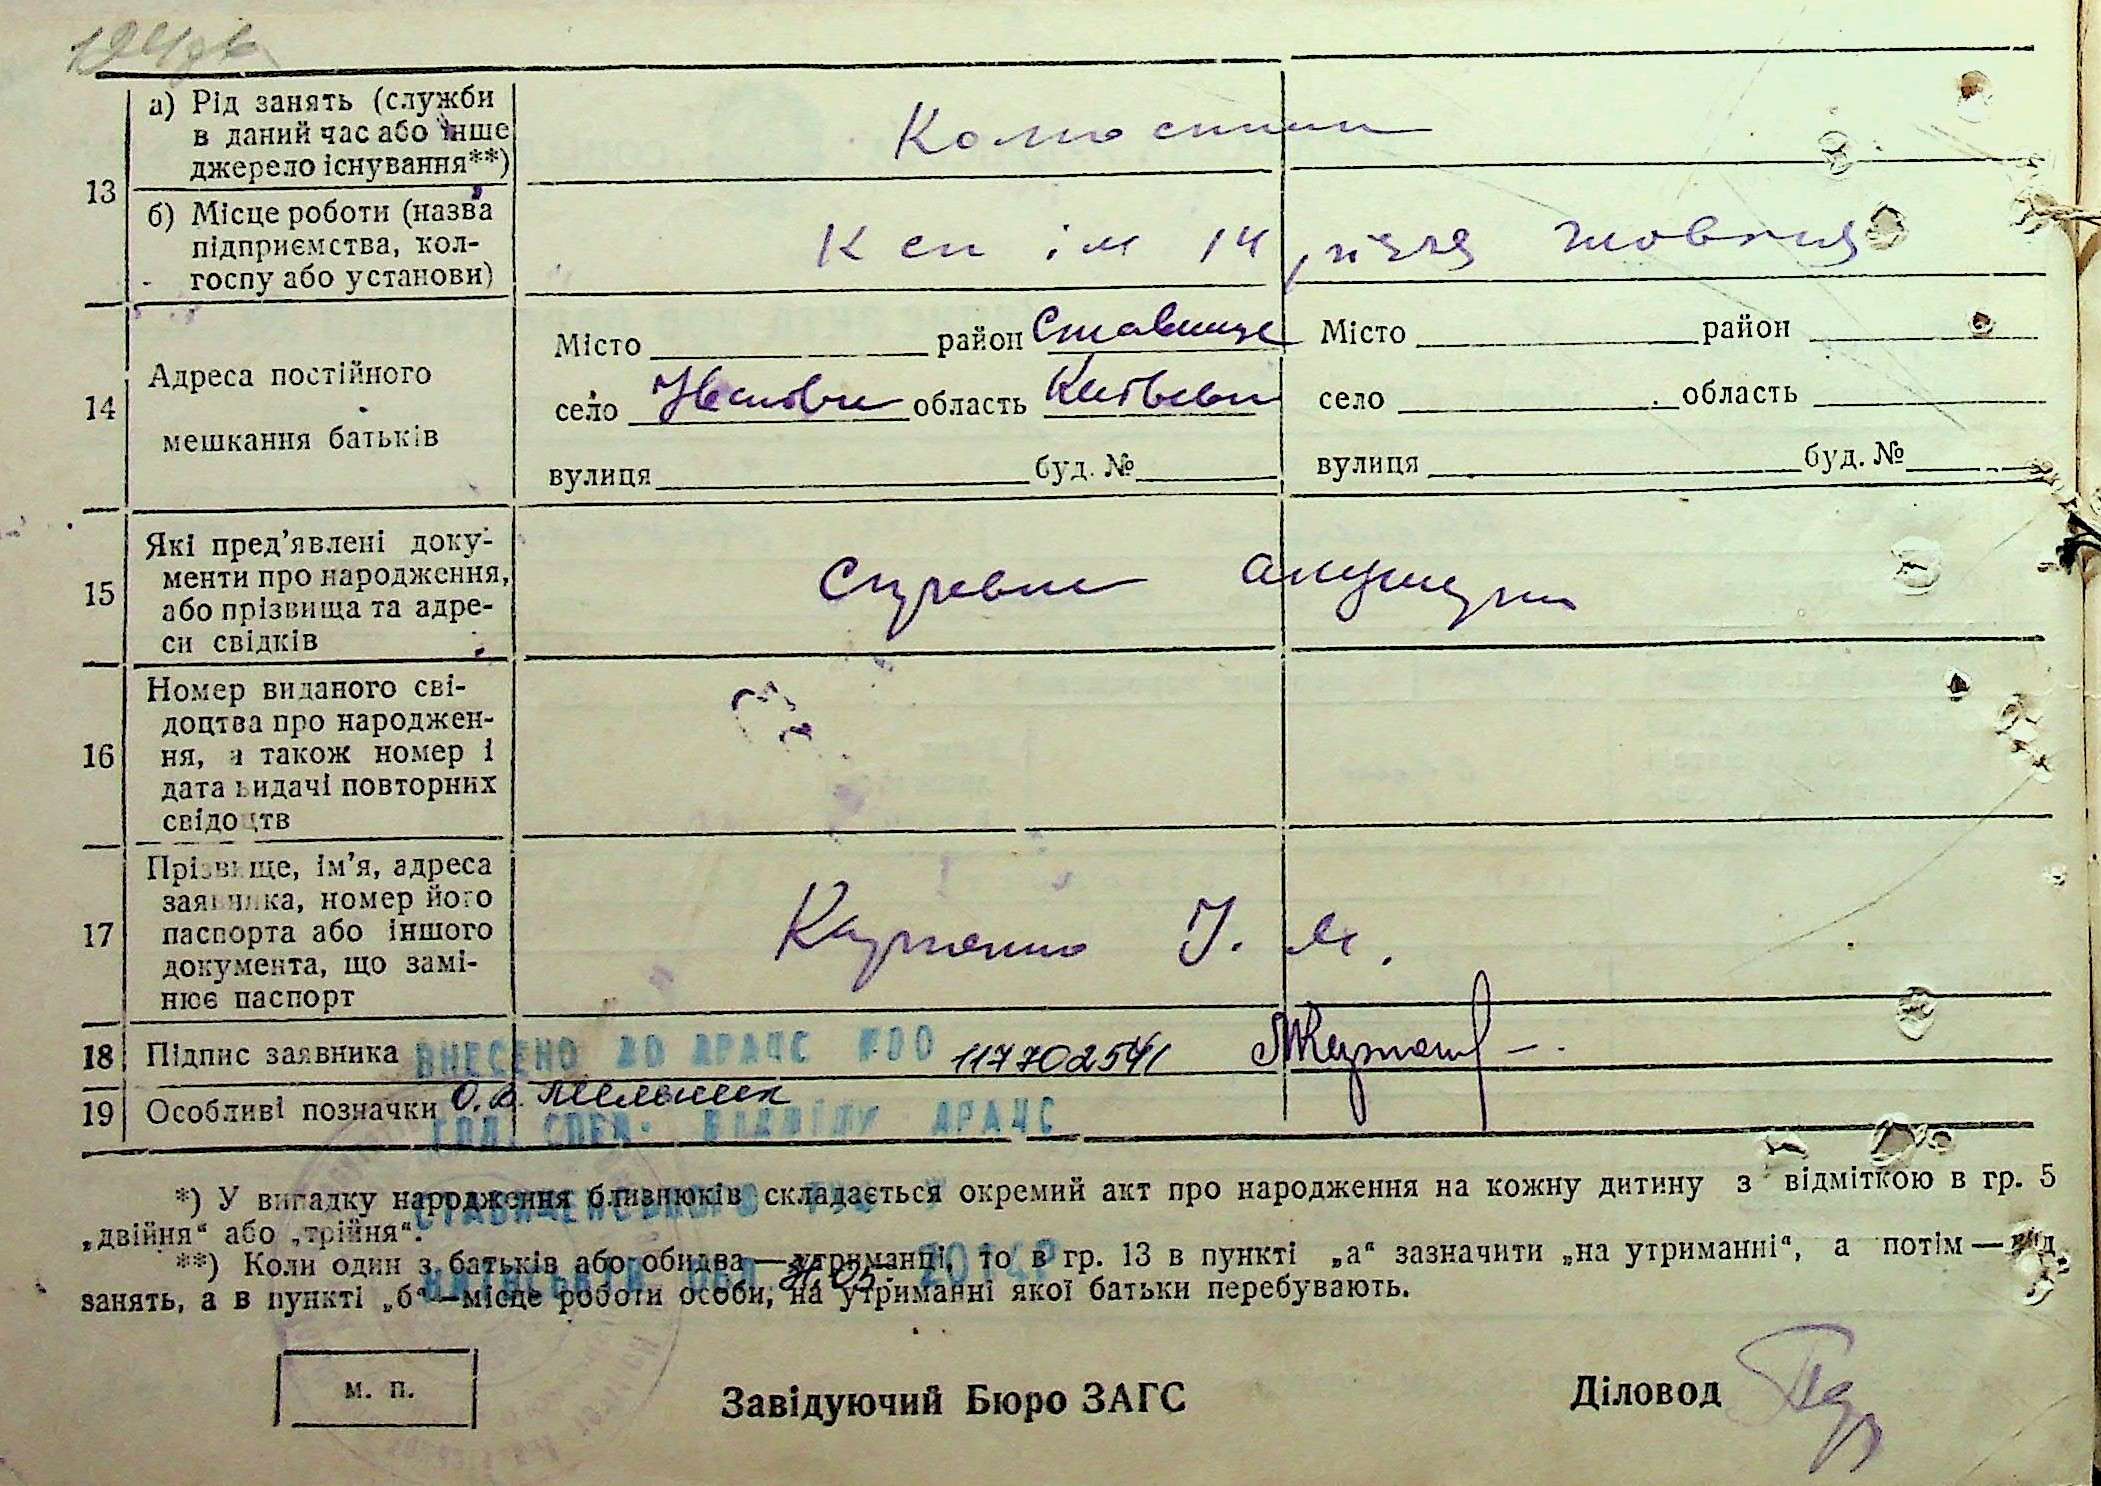 13
а) Рід занять (служби
в даний час або інше
джерело існування**)
б) Місце роботи (назва
підприємства, кол-
госпу або установи)
ім 14 річчя жовтня
14
Адреса постійного
мешкання батьків
Місто район Ставище
село область Київська
вулиця буд. №
Місто район
село область
вулиця буд. №
15
Які пред’явлені доку-
менти про народження,
або прізвища та адре-
си свідків
16
Номер виданого сві-
доцтва про народжен-
ня, а також номер і
дата видачі повторних
свідоцтв
17
Прізвище, ім’я, адреса
заявника, номер його
паспорта або іншого
документа, що замі-
нює паспорт
І. М.
18
Підпис заявника
ВНЕСЕНО ДО ДРАЦС №00 117702541
19
Особливі позначки
О. В. Мельник
ГОЛ. СПЕЦ. ВІДДІЛУ ДРАЦС
*) У випадку народження близнюків складається окремий акт про народження на кожну дитину з відміткою в гр. 5
„двійня“ або „трійня“.
**) Коли один з батьків або обидва—утриманці, то в гр. 13 в пункті „а“ зазначити „на утриманні“, а потім—рід
занять, а в пункті „б“—місце роботи особи, на утриманні якої батьки перебувають.
м. п.
Завідуючий Бюро ЗАГС
Діловод